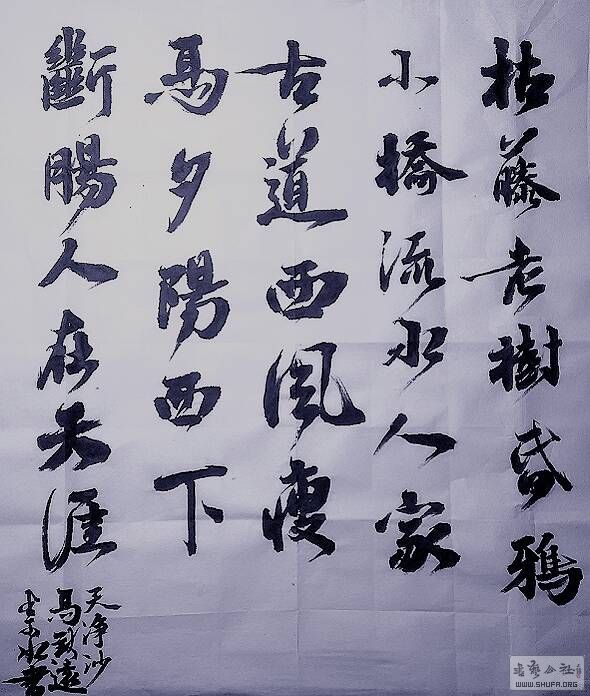 枯藤老樹昏鴉
小橋流水人家
古道西風瘦
馬夕陽西下
斷腸人在天涯
天淨沙
馬致遠
書
WWW.SHUFA.ORG